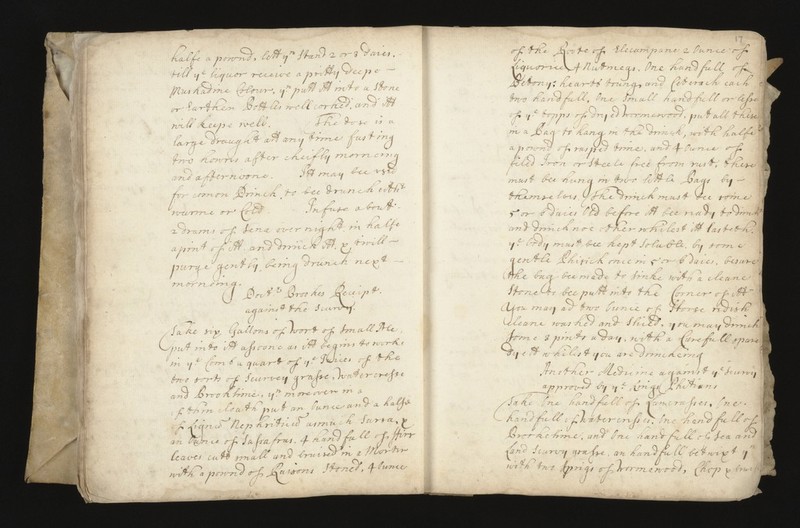 halfe a pownd, lett yn Stand 2 or 3 daies.
till ye liquor receive a pritty deepe
Muskadine Colour, yn putt itt into a Stone
or Earthen Bottles well corked, and itt
will keepe well. The dose is a
large draught att any time fasting
two howrs after cheifly morneing
and afternoone. Itt may bee used
for comon Drinck, to bee drunck either
warme or Cold. Infuse about
2 drams of Sene over night in halfe
a pint of itt and drinck itt, & twill
purge gently, being drunck next
morneing.
Doctr Brookes Receipt
against the Scurvy.
Take six Gallons of wort of small Ale
put into it assoone as itt begins to worke
in ye Comb a quart of ye Juice of the
two sorts of Scurvey grasse, watercresse
and Brooklime, yn moreover in a
of thin cloath put an ounce and a halfe
of Lignū Nephriticū asmuch Sarsa, &
an ounce of Sassafras, 4 handfull of
leaves cutt small and brused in a Morter
with a pownd of Raisons Stoned, 4 ounce
of the Roote of Elecampane 2 Ounce of
Liquorice 4 Nutmegs, One handfull of
Betony: hearts toung, and Ceterach each
two handfull, One Small handfull or lesse
of ye topps of dryed wormwood, put all these
in a Bag to hang in the drinck, with halfe
a pownd of rasped and 4 Ounce of
filed Iron or Steele free from rust, these
must bee hung in two little Bags by
themselves, The drinck must bee some
5 or 6 daies Old before itt bee ready to drinck
and drinck noe other whilest itt lasteth.
ye body must bee kept Soluble, by some
gentle Phisick once in 5 or 6 daies, besure
the bag bee made to sinke with a cleane
Stone to bee putt into the Corner of itt
you may ad two ounce of Horse redish
cleane washed and Sliced, you may drinck
some 2 pints a day, with a Carefull
dyett whilest you are drincking
Another Medicine against ye Scurvy
approved by ye Kings Phitians
Take One handfull of One
handfull of watercresses, One handfull of
Brookelime, and One handfull of Sea and
Land Scurvy grasse, an handfull betwixt ym
with two sprigs of wormewood, Chop &